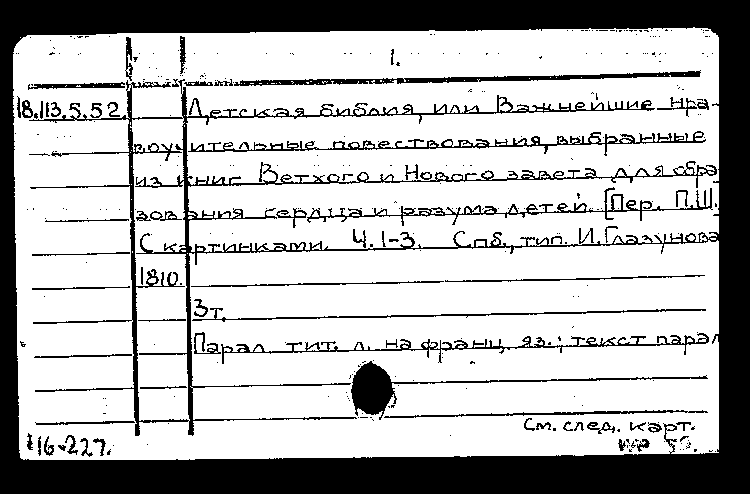 1.
18.113.5.52. Детская библия, или Важнейшие нра-
воучительные повествования, выбранные
из книг Ветхого и Нового завета для обра
зования сердца и разума детей. [Пер. П.Ш.
С картинками. Ч. 1-3. Спб., тип. И. Глазунова
1810.
3т.
Парал. тит. л. на франц. яз.; текст парал
См. след. карт.
116-227.